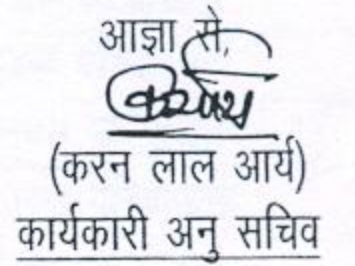 आज्ञा से,
(करन लाल आर्य)
कार्यकारी अनु सचिव